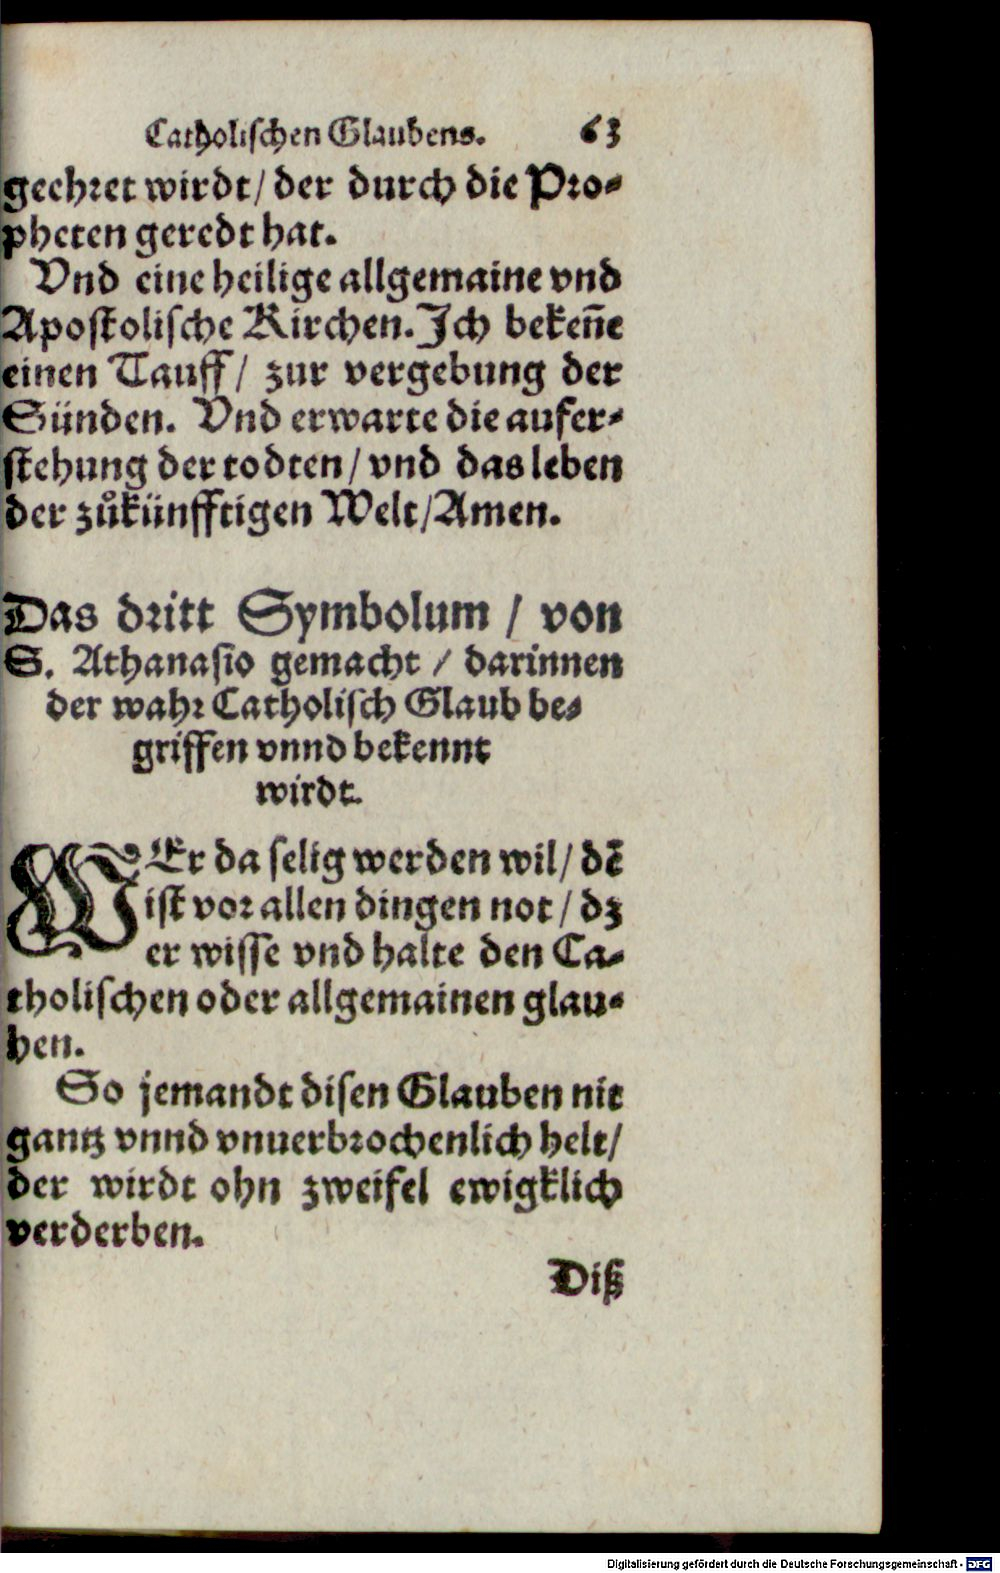 Catholischen Glaubens. 63
geehret wirdt/ der durch die Pro-
pheten geredt hat.
Vnd eine heilige allgemaine vnd
Apostolische Kirchen. Ich bekeñe
einen Tauff/ zur vergebung der
Sünden. Vnd erwarte die aufer-
stehung der todten/ vnd das leben
der zůkünfftigen Welt/ Amen.
Das dritt Symbolum / von
S. Athanasio gemacht / darinnen
der wahr Catholisch Glaub be-
griffen vnnd bekennt
wirdt.
WEr da selig werden wil/ dē
ist vor allen dingen not/ dz
er wisse vnd halte den Ca-
tholischen oder allgemainen glau-
ben.
So jemandt disen Glauben nit
gantz vnnd vnuerbrochenlich helt/
der wirdt ohn zweifel ewigklich
verderben.
Diß
Digitalisierung gefördert durch die Deutsche Forschungsgemeinschaft - DFG